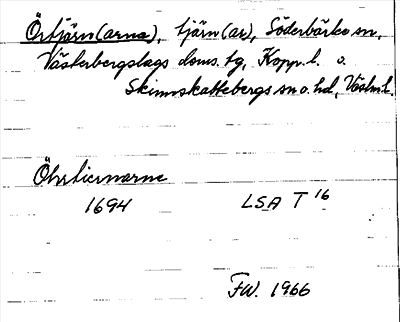 Örtjärn(arna), tjärn(ar), Söderbärke sn,
Västerbergslags doms. tg, Kopp. l. o.
Skinnskattebergs sn o. hd, Västm. l.
Öhrtiernarne
1694 LSA T 16
FW. 1966